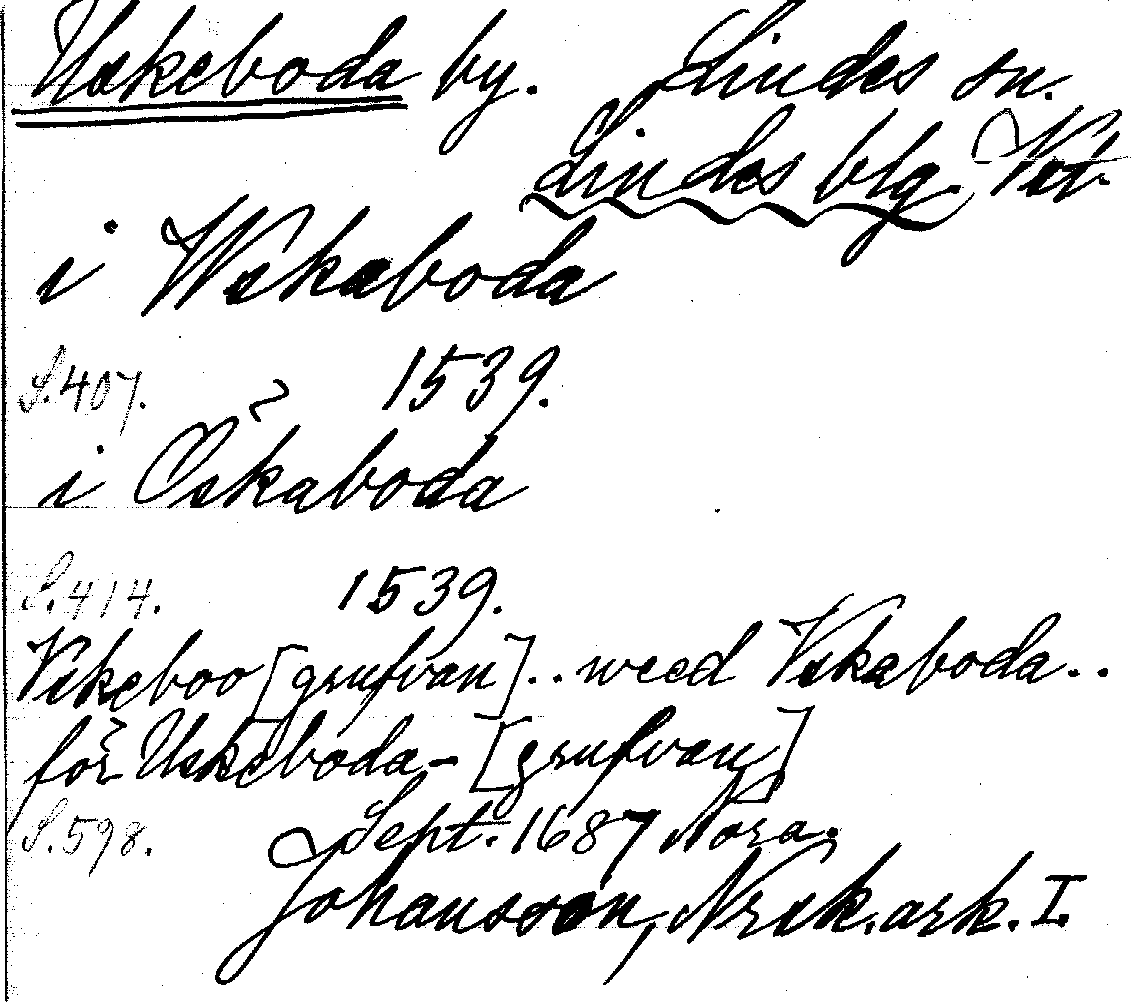 Uskeboda by. Lindes sn.
Lindes blg Vst.
i Wskaboda
S.407. 1539.
i Öskaboda
S.414. 1539.
Vskeboo [grufvan].. weed Vskaboda..
för Uskeboda- [grufvan]
S.598. Sept. 1687 Nora.
Johansson, Nrsk. ark. I.